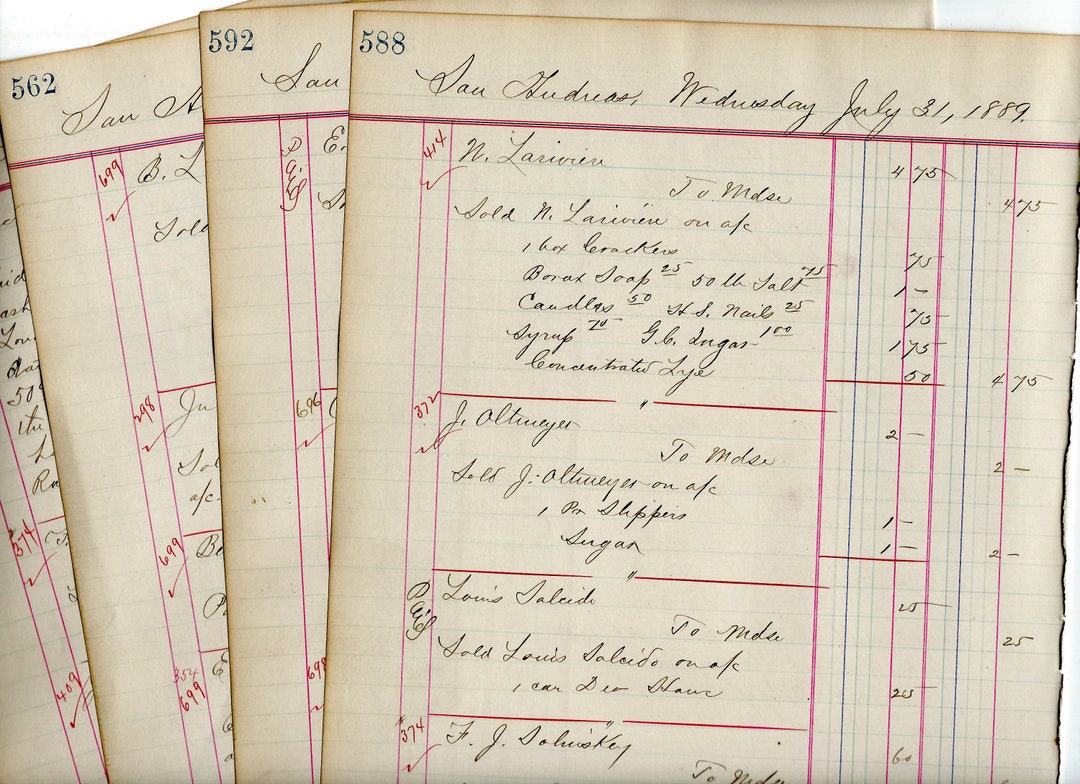 588
San Andreas, Wednesday July 31, 1889.
414 N. Lariviere 4 75
To Mdse 4 75
Sold N. Lariviere on a/c
1 box Crackers 75
Borax Soap 25 50 lb Salt 75 1 —
Candles 50 H.S. Nails 25 75
Syrup 75 G.C. Sugar 1 00 1 75
Concentrated Lye 50 4 75
"
372 J. Oltmeyer 2 —
To Mdse 2 —
Sold J. Oltmeyer on a/c
1 Pr Slippers 1 —
Sugar 1 — 2 —
"
Paid Louis Salcido 25
To Mdse 25
Sold Louis Salcido on a/c
1 can Dev Ham 25
"
374 F. J. 60
To Mdse
592
San
Paid E.
696
698
562
San A
699 B. L
Sold
298 Jn
Sol
a/c
699 Be
354
699 E
374
409
50
the